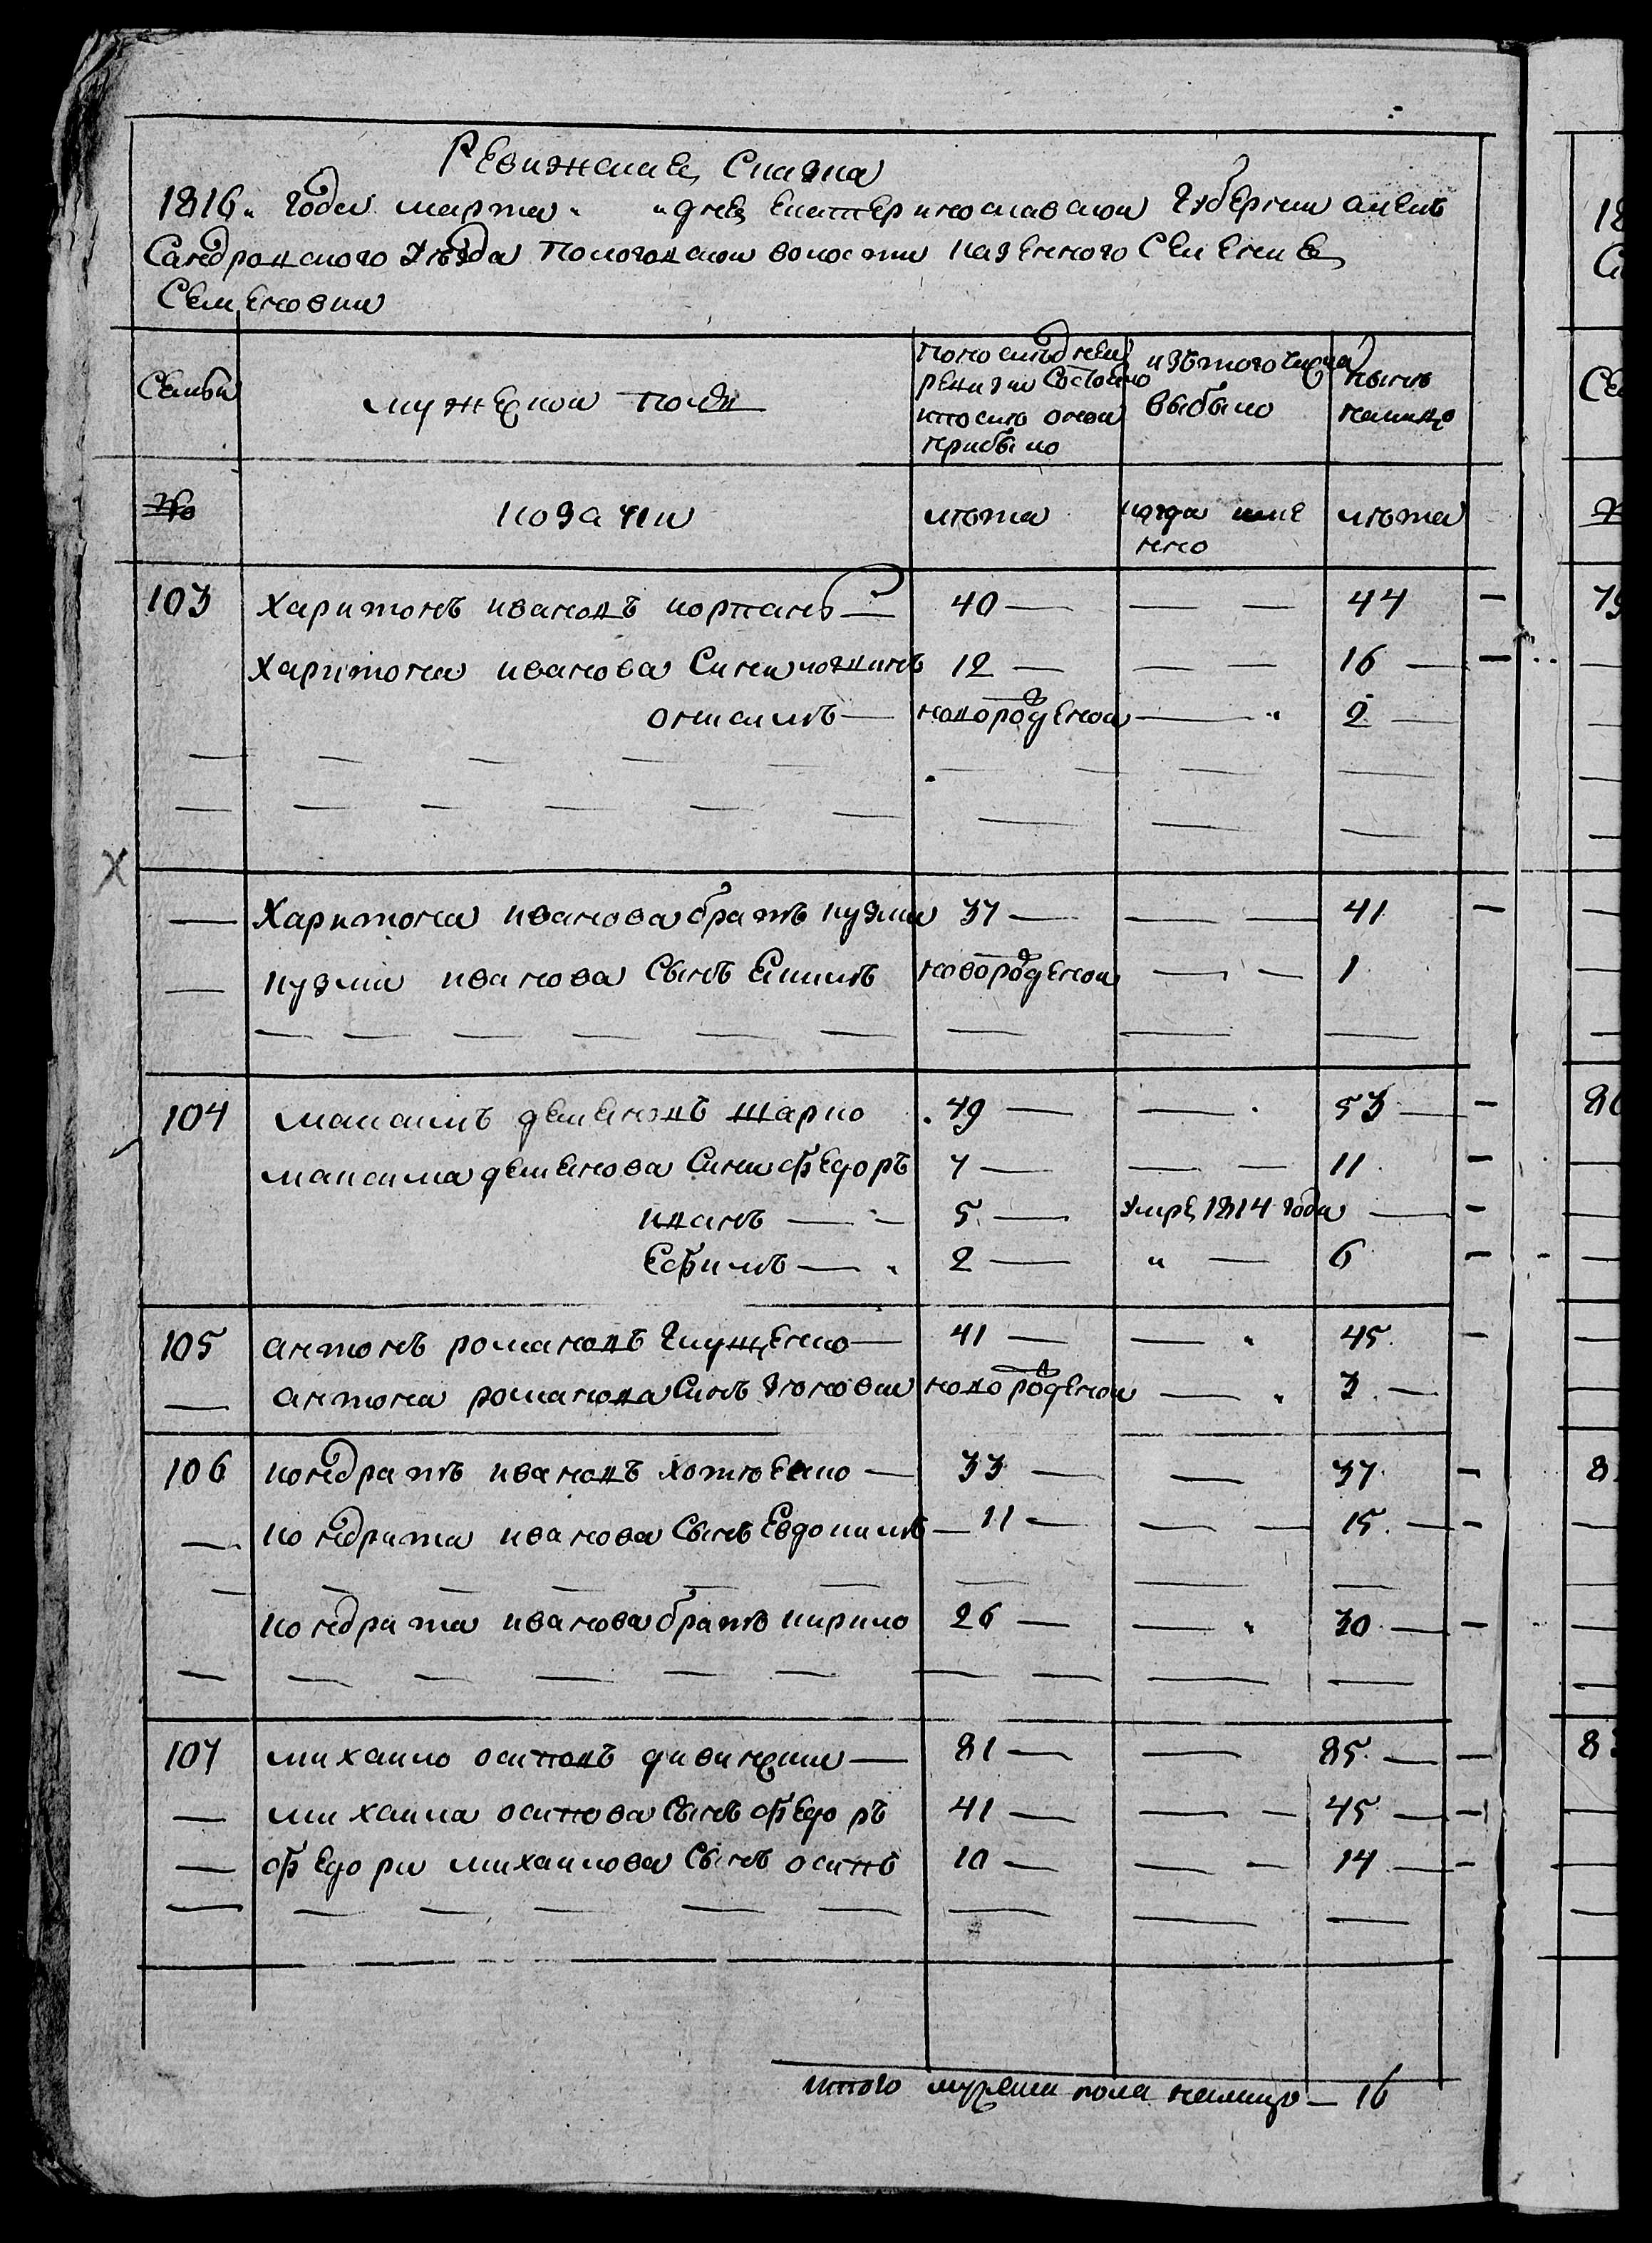 Ревижская Сказка
1816 года марта " " дня Екатеринославской губернии алекъ
сандровского уезда Пологовской волости казенного Селения
Семеновки
Семьи
мужеской полъ
по последней
ревизии состояло
и после оной
прибыло
изъ того числа
выбыло
ныне
налицо
№
козачки
лета
когда име
нно
лета
103 Харитонъ Ивановъ корпанъ — 40 — — — 44 —
Харитона Иванова Сини логвинъ 12 — — — 16 — —
онисимъ — новорожденой — " 2 —
— Харитона Иванова братъ кузма 37 — — — 41 —
— кузми Иванова Сынъ Екимъ новорожденой — — 1
104 максимъ деменовъ шарко 49 — — 53 — —
максима деменова Сини федоръ 7 — — — 11 —
иванъ — — 5 — умре 1814 года — —
Ефимъ — " 2 — " — 6 —
105 антонъ романовъ Глущенко — 41 — — " 45 —
— антона романова Синъ новорожденой — " 3 —
106 кондратъ ивановъ — 33 — — 37 —
— кондрата иванова Сынъ Евдокимъ — 11 — — — 15 — —
кондрата иванова братъ кирило 26 — — " 30 — —
107 михаило осиповъ — 81 — — 85 — —
— михаила осипова Сынъ федоръ 41 — — — 45 — —
— федора михаилова Сынъ осипъ 10 — — — 14 — —
итого мужеска пола налицо — 16